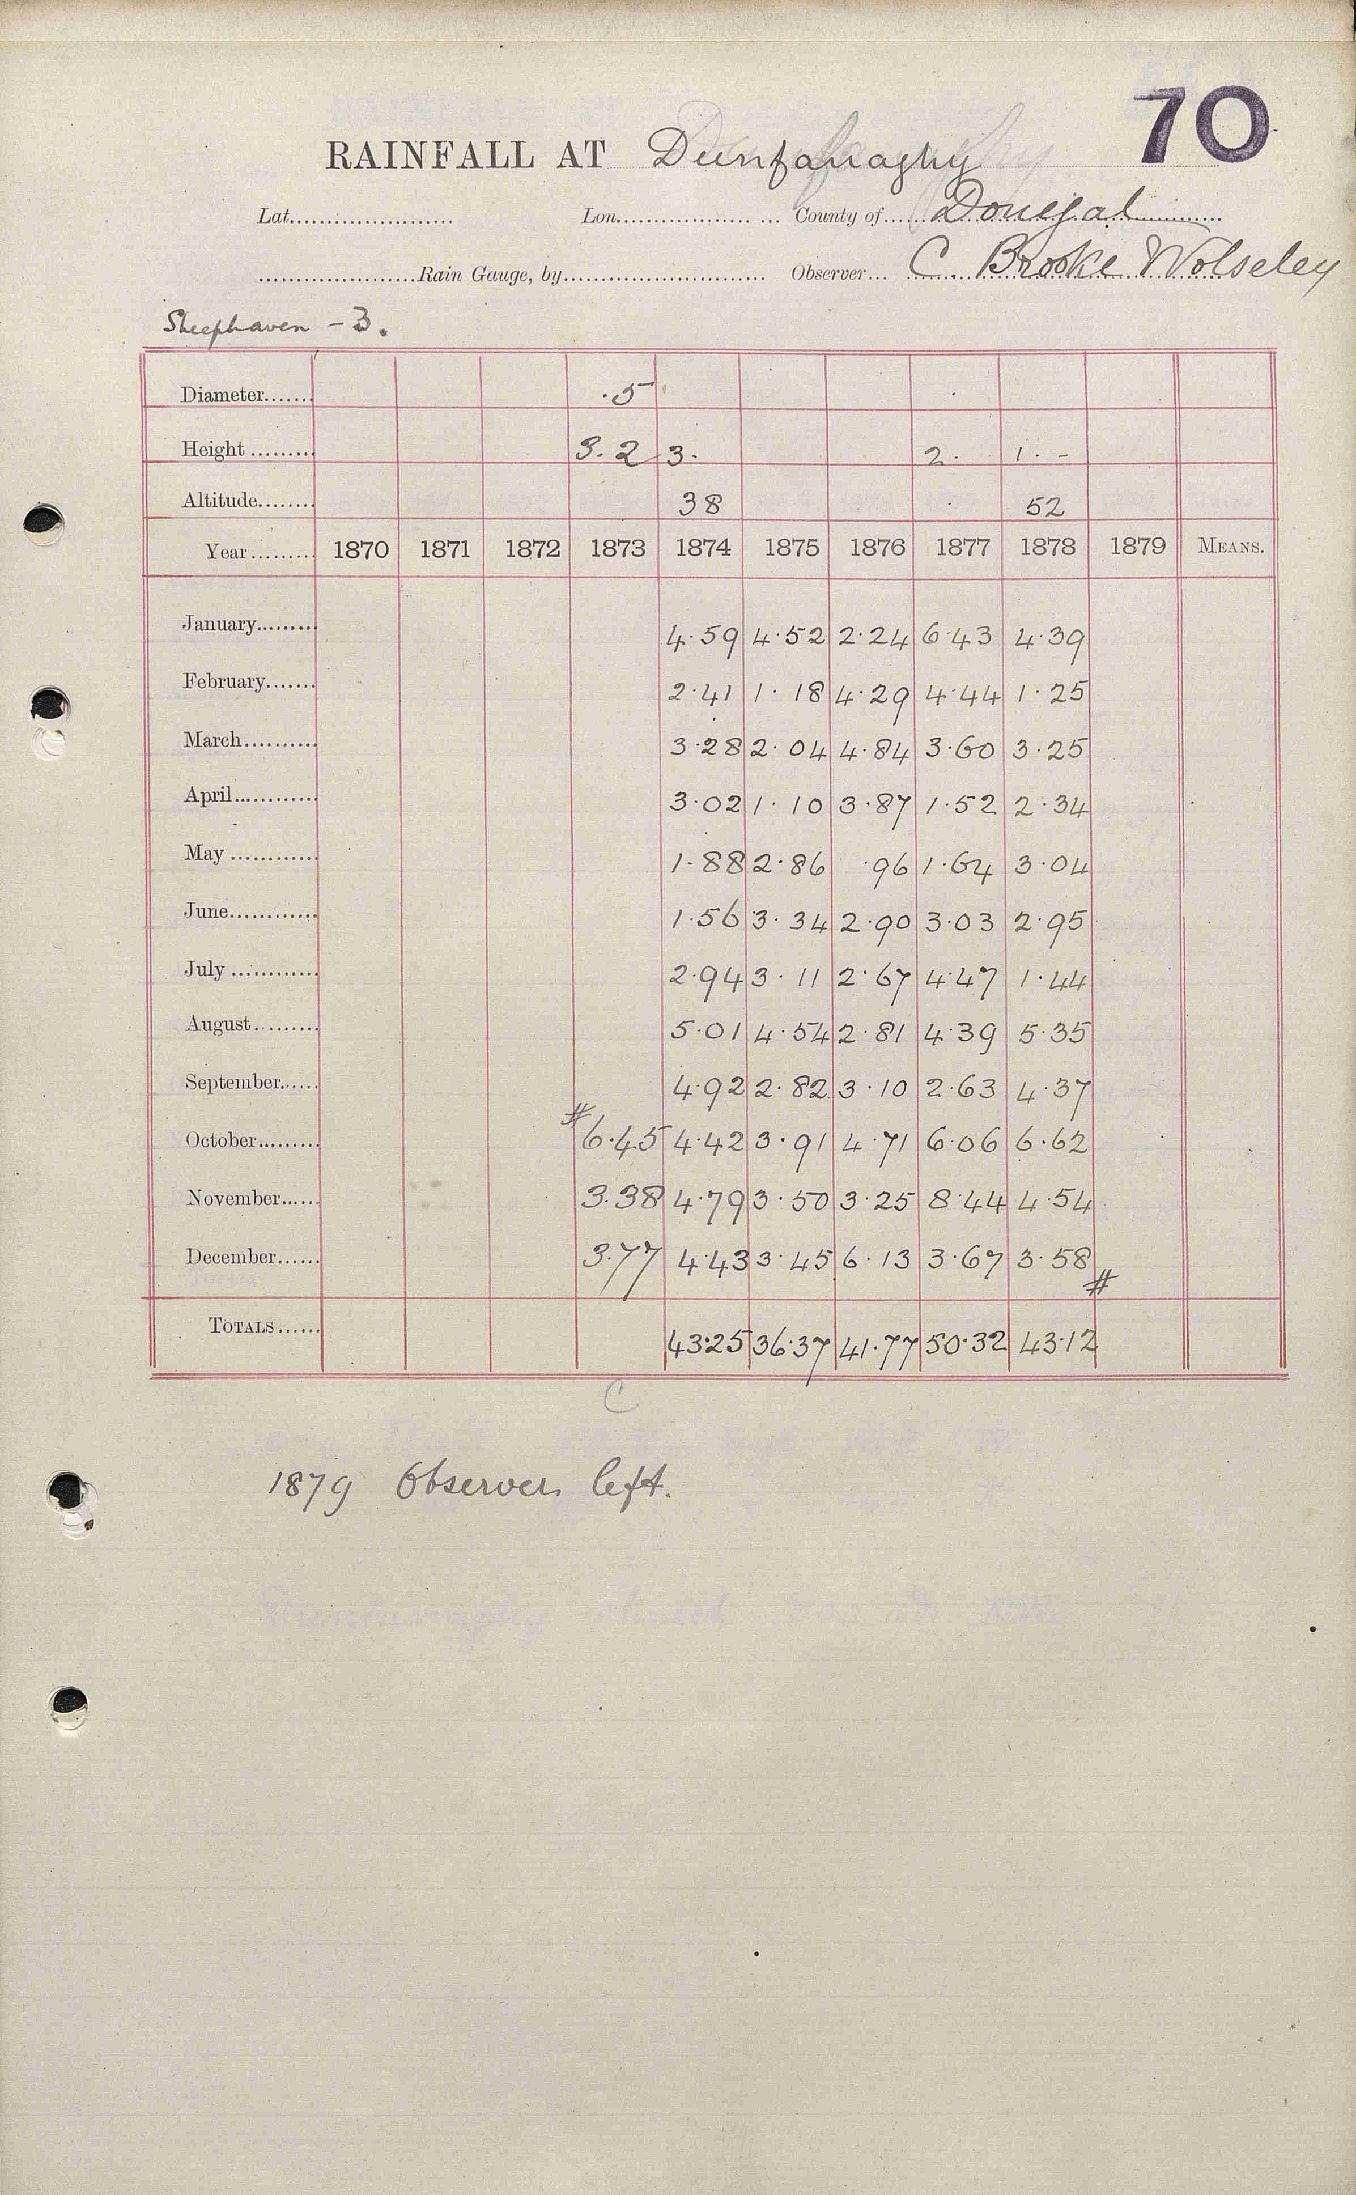 70
RAINFALL AT Dunfanaghy
Lat. Lon. County of Donegal
Rain Gauge, by Observer C. Brooke Wolseley
Sheephaven - 3.
Diameter ·5
Height 3. 2 3. 2. 1. -
Altitude 38 52
Year 1870 1871 1872 1873 1874 1875 1876 1877 1878 1879 MEANS.
January 4·59 4·52 2·24 6·43 4·39
February 2·41 1·18 4·29 4·44 1·25
March 3·28 2·04 4·84 3·60 3·25
April 3·02 1·10 3·87 1·52 2·34
May 1·88 2·86 ·96 1·64 3·04
June 1·56 3·34 2·90 3·03 2·95
July 2·94 3·11 2·67 4·47 1·44
August 5·01 4·54 2·81 4·39 5·35
September 4·92 2·82 3·10 2·63 4·37
October #6·45 4·42 3·91 4·71 6·06 6·62
November 3·38 4·79 3·50 3·25 8·44 4·54
December 3·77 4·43 3·45 6·13 3·67 3·58 #
TOTALS 43·25 36·37 41·77 50·32 43·12
C
1879 Observer left.